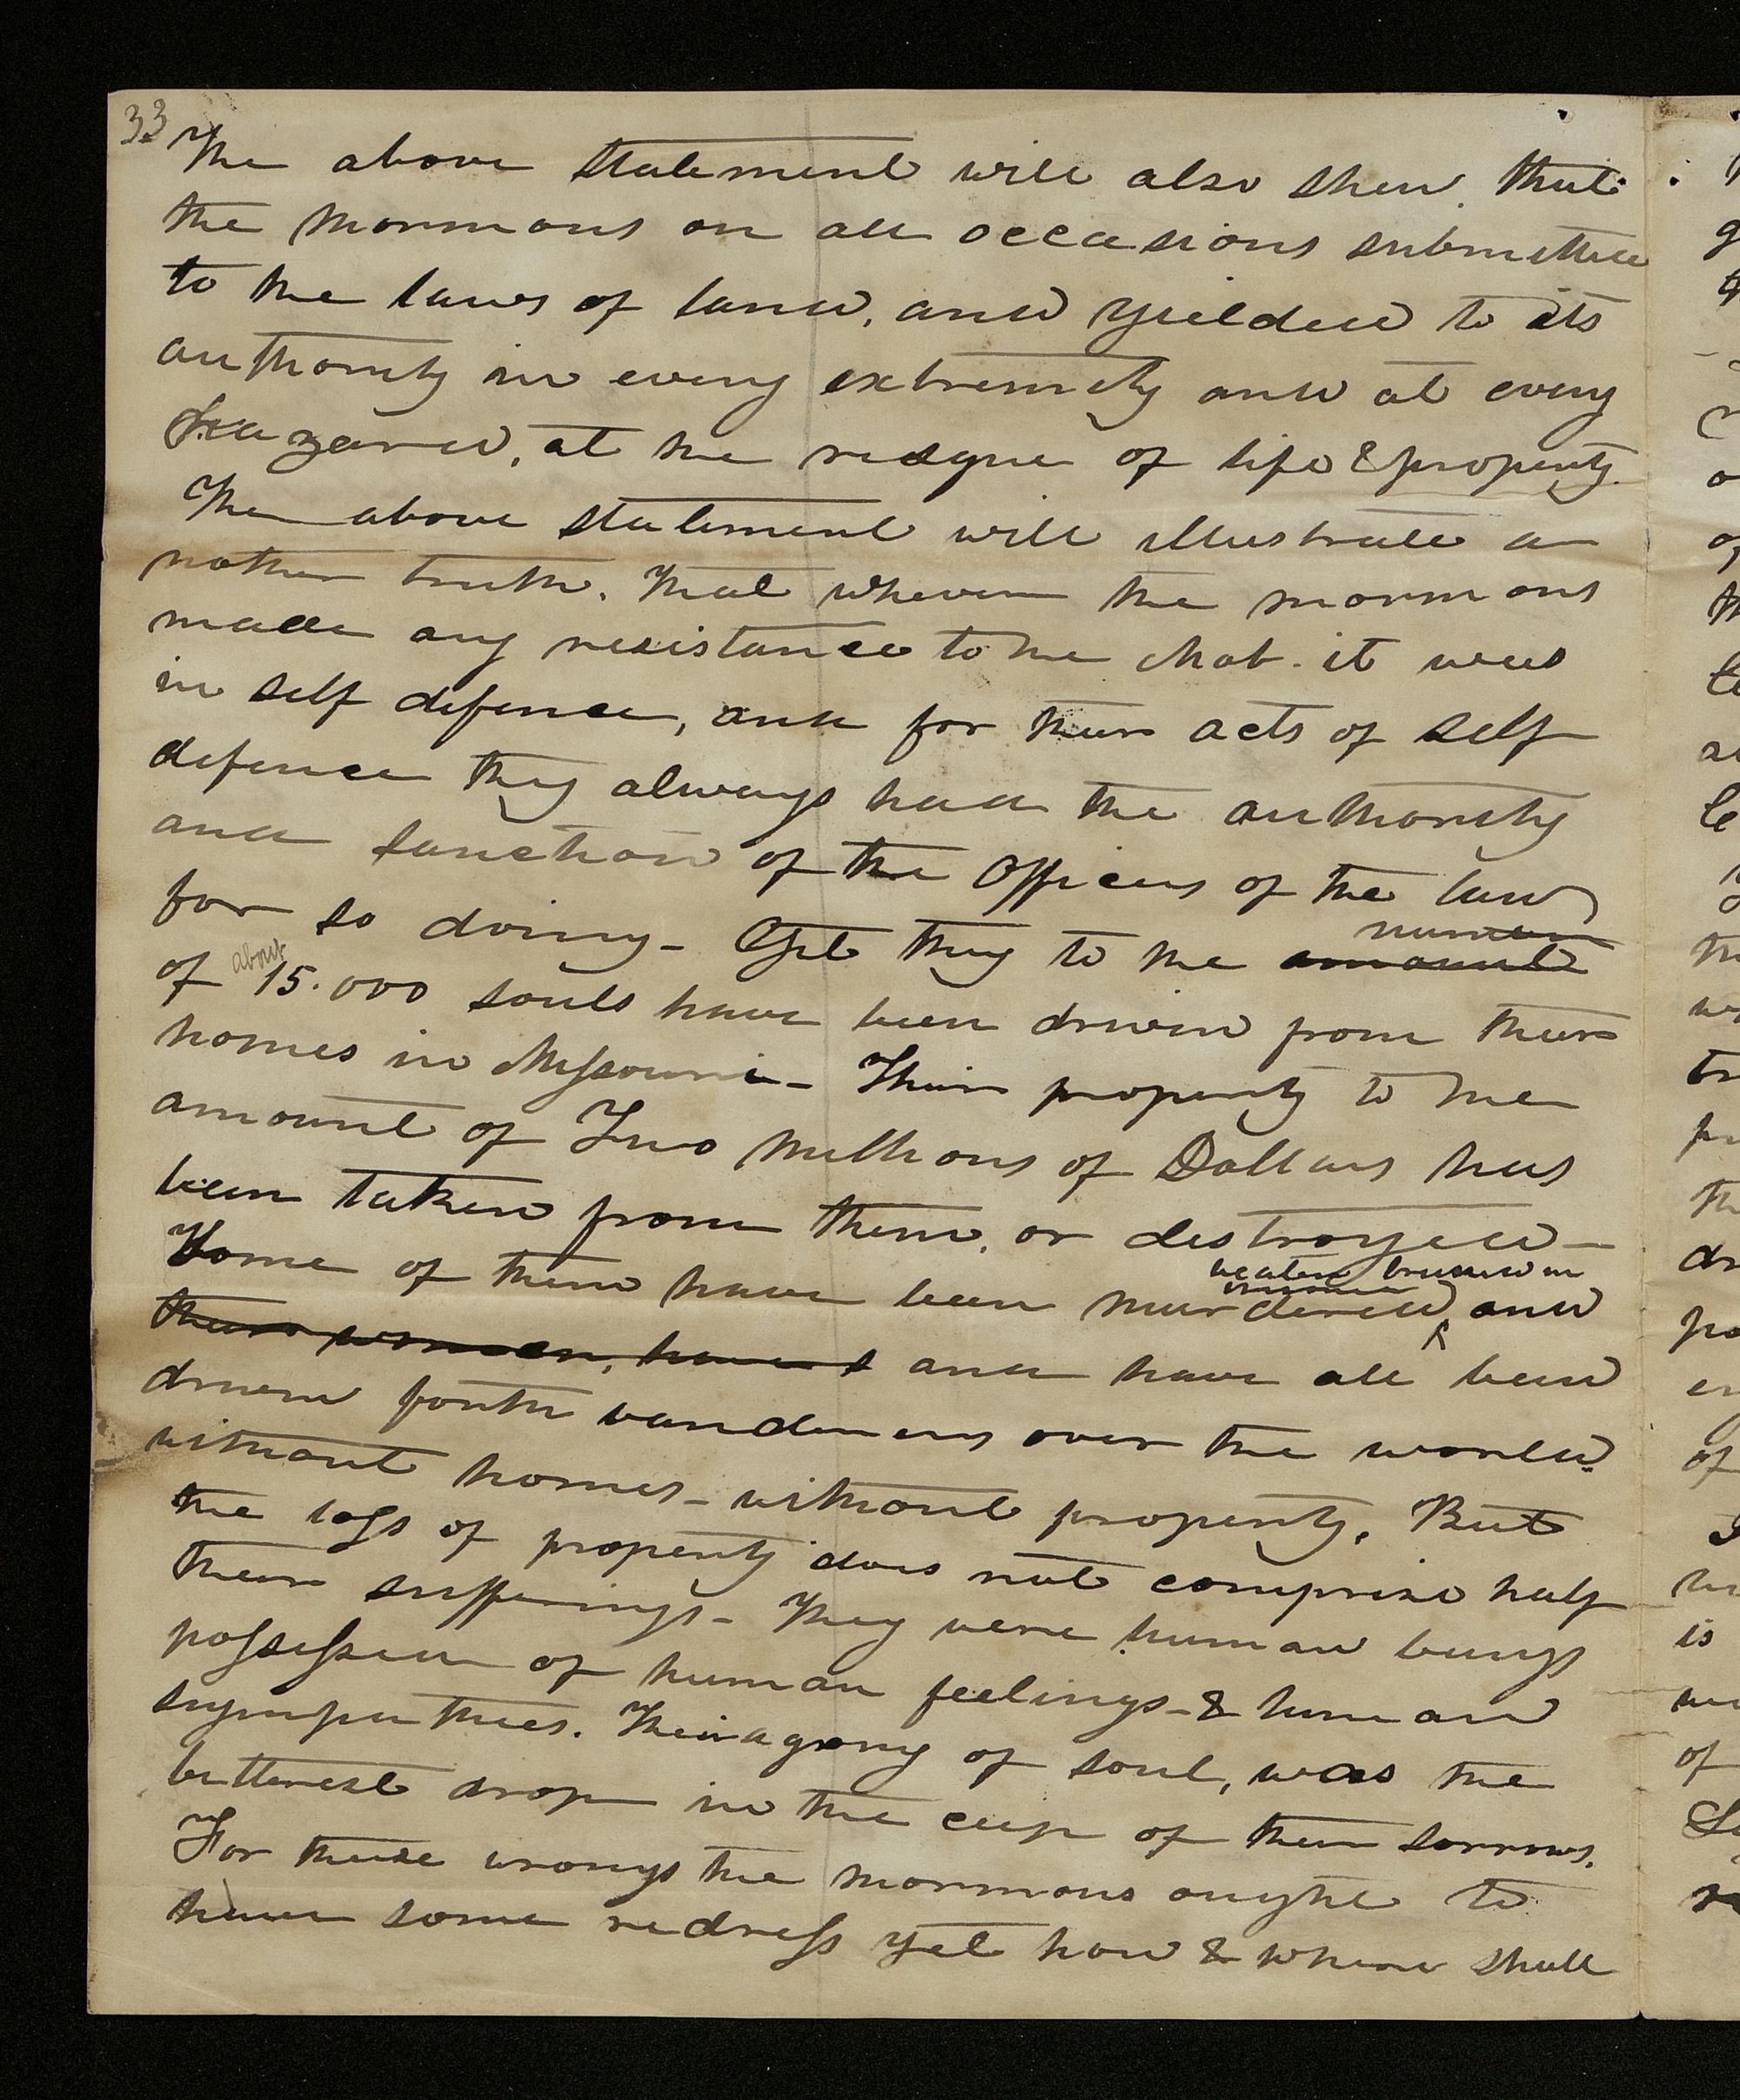 33
The above statement will also shew that
the Mormons on all occasions submitted
to the laws of land, and yielded to its
authority in every extremity and at every
hazard, at the risque of life & property.
The above statement will illustrate a
nother truth. that whever the mormons
made any resistance to the Mob. it was
in self defence, and for their acts of self
defence they always had the authority
and sanction of the Officers of the law
for so doing - Yet they to the amount number
of about 15.000 souls have been driven from their
homes in Missouri - Their property to the
amount of Two Millions of Dollars has
been taken from them, or destroyed -
Some of them have been murdered beaten bruised and
their women, have and have all been
driven forth wanderers over the world
without homes - without property. But
the loss of property does not comprise half
their sufferings - They were human beings
possessed of human feelings - & human
sympathies. Their agony of soul, was the
bitterest drop in the cup of their sorrows.
For these wrongs the Mormons ought to
have some redress yet how & where shall